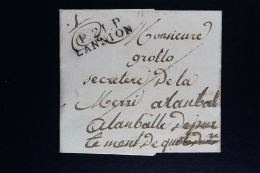 P 21 P
LANNION
Monsieure
grollo
secretere de la
Merri alanball
alanballe depar
tement de